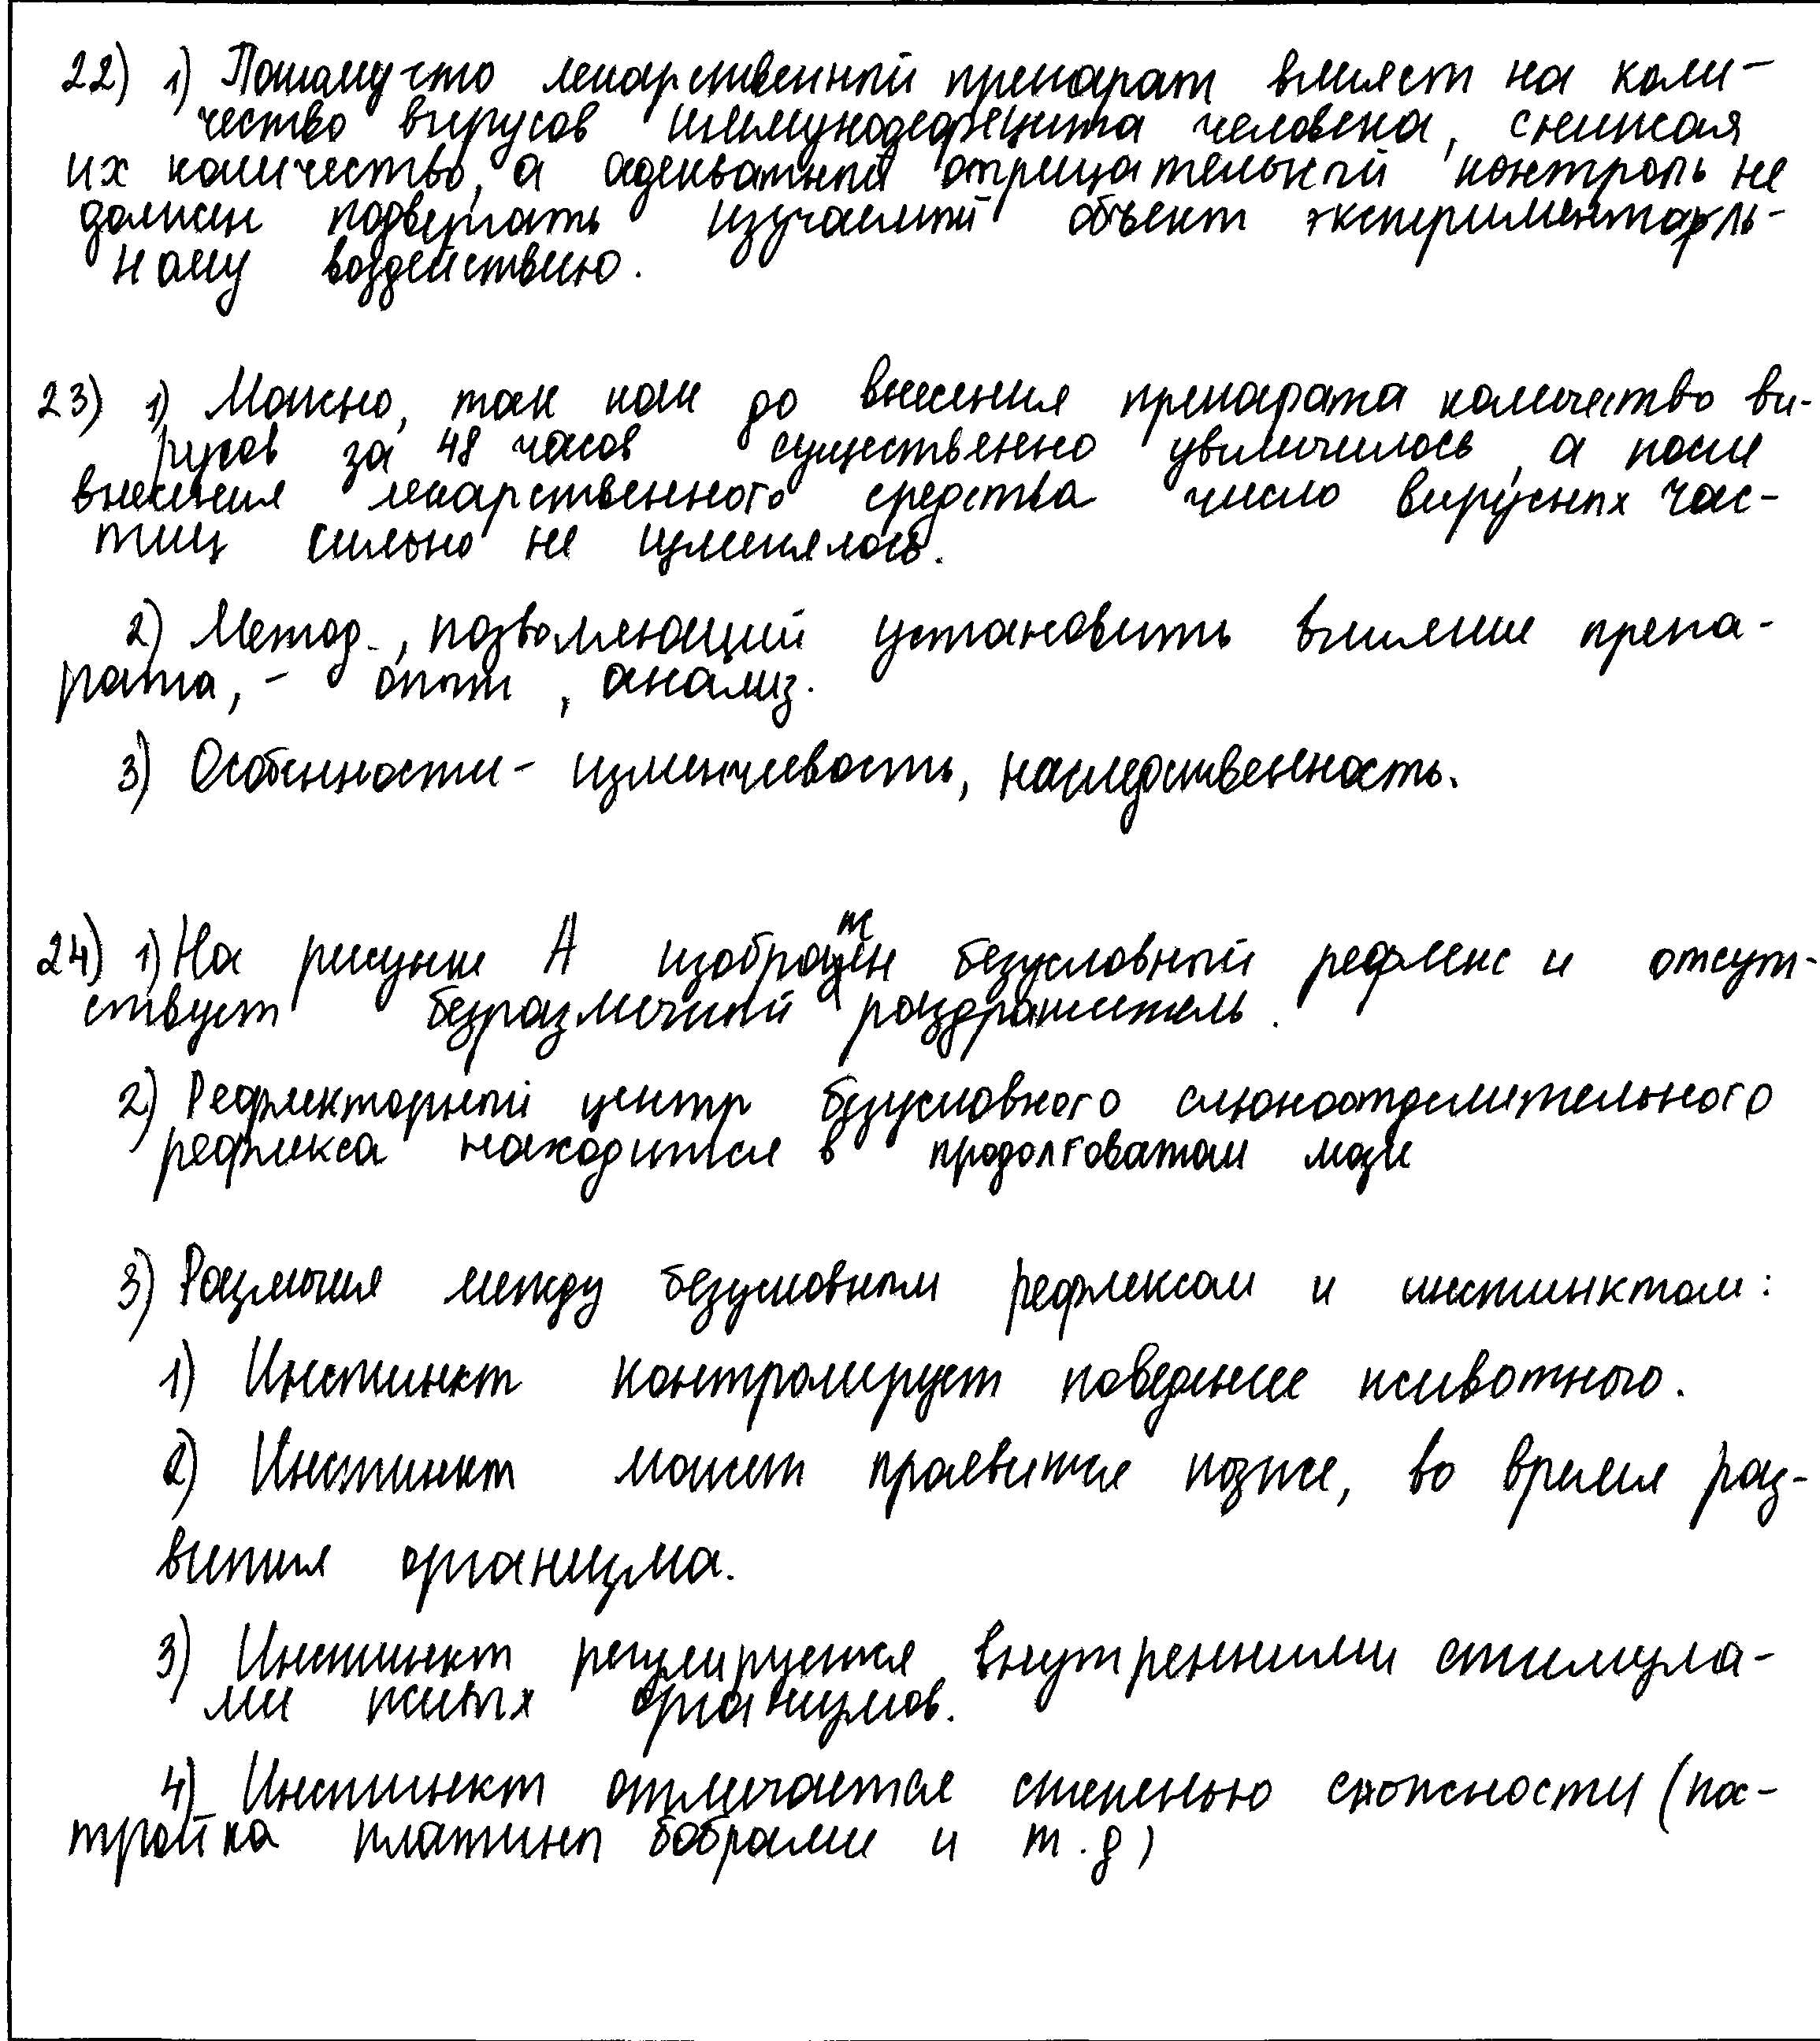 22) 1) Потому что лекарственный препарат влияет на коли-
чество вирусов иммунодефецита человека, снижая
их количество, а адекватный отрицательный контроль не
должен подвергать изучаемый объект эксперименталь-
ному воздействию.
23) 1) Можно, так как до внесения препарата количество ви-
русов за 48 часов существенно увиличилось, а после
внесения лекарственного средства число вирусных час-
тиц сильно не изменялось.
2) Метод, позволяющий установить влияние препа-
рата, - опыт, анализ.
3) Особенности - изменчивость, наследственность.
24) 1) На рисунке А изображен безусловный рефлекс и отсут-
ствует безразличный раздражитель.
2) Рефлекторный центр безусловного слюноотделительного
рефлекса находится в продолговатом мозге
3) Различия между безусловным рефлексом и инстинктом:
1) Инстинкт контролирует поведение животного.
2) Инстинкт может проявится позже, во время раз-
вития организма.
3) Инстинкт регулируется внутренними стимула-
ми живых организмов.
4) Инстинкт отличается степенью сложности (пос-
тройка платины бобрами и т.д)